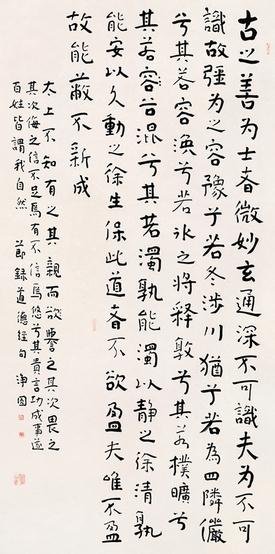 古之善为士者微妙玄通深不可識夫为不可
識故强为之容豫子若冬涉川猶子若為四隣儼
兮其若容渙兮若冰之将释敦兮其若樸曠兮
其若容谷混兮其若濁孰能濁以静之徐清孰
能安以久動之徐生保此道者不欲盈夫唯不盈
故能蔽不新成
太上不知有之其親而欲譽之其次畏之
其次侮之信不足焉有不信焉悠兮其貴言功成事遂
百姓皆謂我自然 節録道德經句 净圆